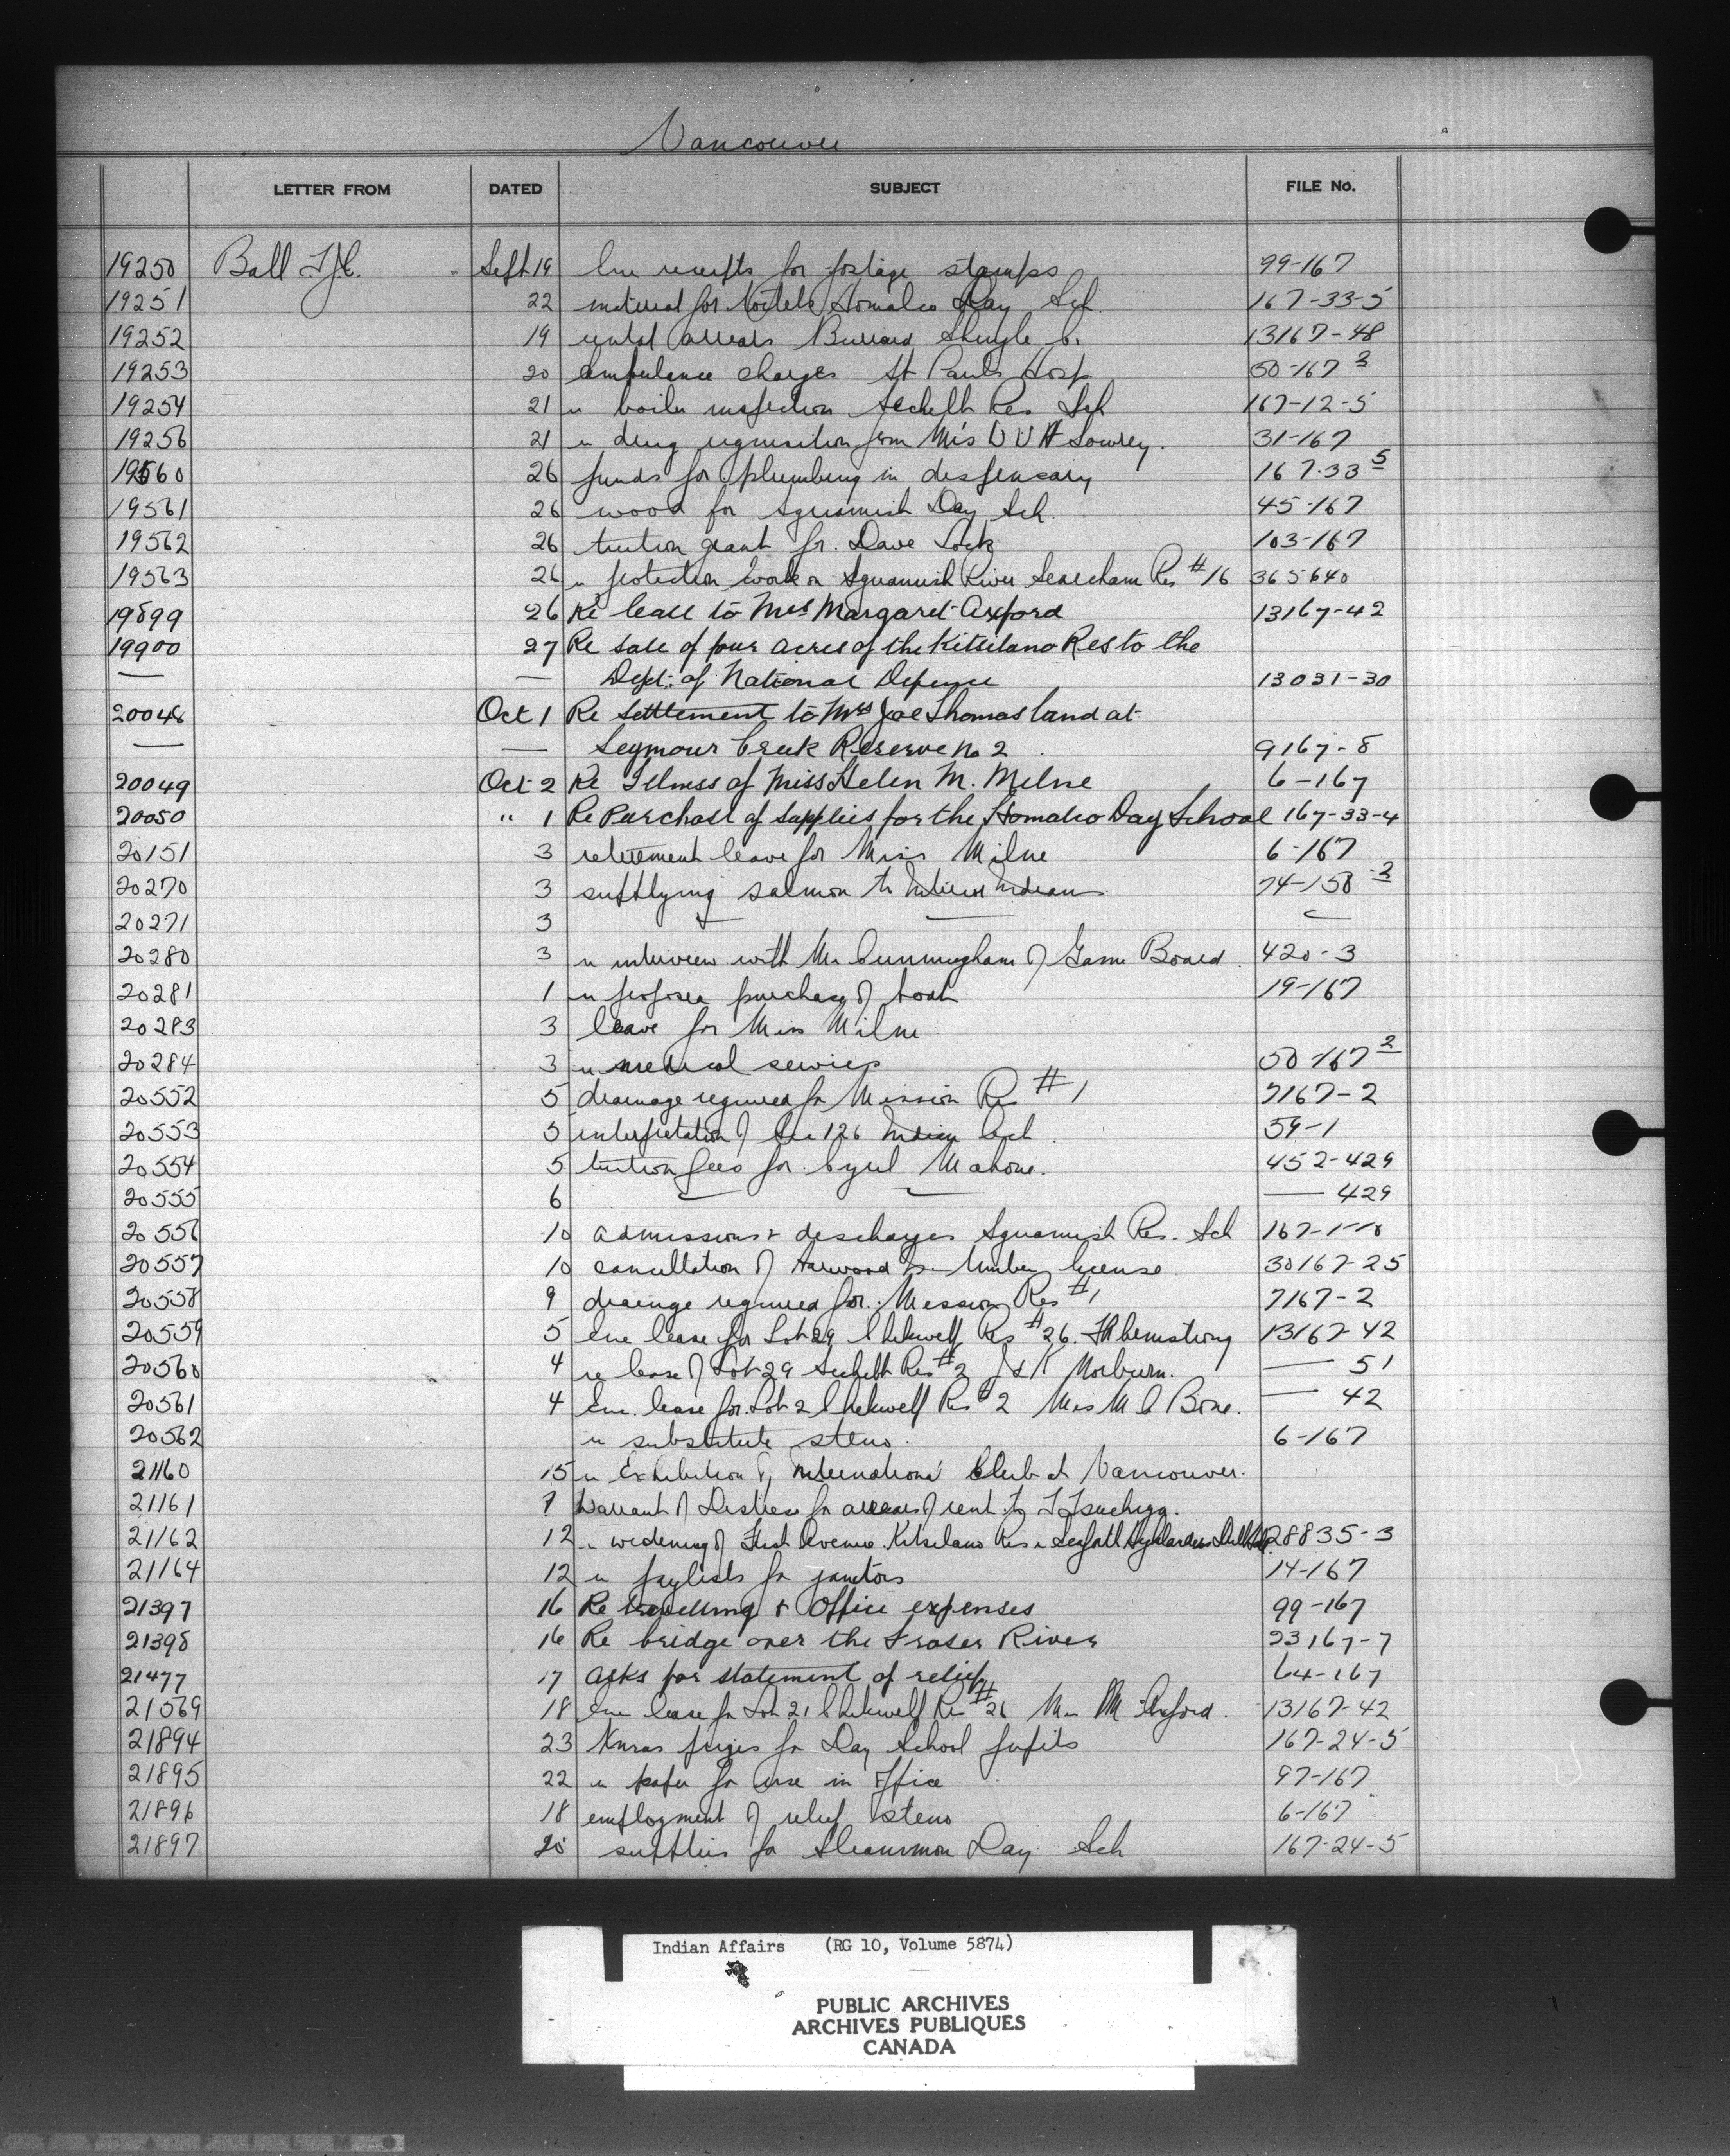 Vancouver
LETTER FROM DATED SUBJECT FILE No.
19250 Ball F.J.C. Sept 19 Enc receipts for postage stamps 99-167
19251 22 material for toilets Homalco Day Sch. 167-33-5
19252 19 rental arrears Burrard Shingle Co. 13167-48
19253 20 ambulance charges St Pauls Hosp 50-167 3
19254 21 re boiler inspection Sechelt Res Sch 167-12-5
19256 21 re drug requisition from Mrs Lowrey. 31-167
19560 26 funds for plumbing in dispensary 167-33 5
19561 26 wood for Squamish Day Sch. 45-167
19562 26 tuition grant for Dave Lock 103-167
19563 26 re protection work on Squamish River Seaicham Res #16 365640
19899 26 Re lease to Mrs Margaret Axford 13167-42
19900 27 Re sale of four acres of the Kitsilano Res to the
— — Dept. of National Defence 13031-30
20048 Oct 1 Re Settlement to Mrs Joe Thomas land at
— — Seymour Creek Reserve No 2 9167-8
20049 Oct 2 Re Illness of Miss Helen M. Milne 6-167
20050 " 1 Re Purchase of supplies for the Homalco Day School 167-33-4
20151 3 retirement leave for Miss Milne 6-167
20270 3 supplying salmon to Interior Indians 74-158-3
20271 3 — — —
20280 3 re interview with Mr Cunningham of Game Board 420-3
20281 1 re proposed purchase of boat 19-167
20283 3 leave for Miss Milne
20284 3 re medical services 50-167 2
20552 5 drainage required for Mission Res #1 7167-2
20553 5 interpretation of Sec 126 Indian Act 59-1
20554 5 tuition fees for Cyril Mahone. 452-429
20555 6 — — — 429
20556 10 admissions & discharges Squamish Res. Sch 167-1-10
20557 10 cancellation of Harwood Is. timber license 30167-25
20558 9 drainage required for Mission Res #1 7167-2
20559 5 Enc lease for Lot 29 Chekwelp Res #26. 13167-42
20560 4 re lease of Lot 29 Sechelt Res #2 J & K — 51
20561 4 Enc. lease for Lot 2 Chekwelp Res #2 Mrs M C Bone. — 42
20562 re substitute steno. 6-167
21160 15 re Exhibition by International Club at Vancouver.
21161 9 Warrant of Distress for arrears of rent by T Tsuchiya.
21162 12 re widening of First Avenue. Kitsilano Res re Seaforth Highlanders Drill Hall 28835-3
21164 12 re paylists for janitors 14-167
21397 16 Re travelling & Office expenses 99-167
21398 16 Re bridge over the Fraser River 23167-7
21477 17 Asks for statement of relief 64-167
21569 18 Enc lease for Lot 21 Chekwelp Res #26 Mrs M Axford. 13167-42
21894 23 Xmas prizes for Day School pupils 167-24-5
21895 22 re paper for use in office 97-167
21896 18 employment of relief steno 6-167
21897 20 supplies for Sliammon Day Sch 167-24-5
Indian Affairs (RG 10, Volume 5874)
PUBLIC ARCHIVES
ARCHIVES PUBLIQUES
CANADA